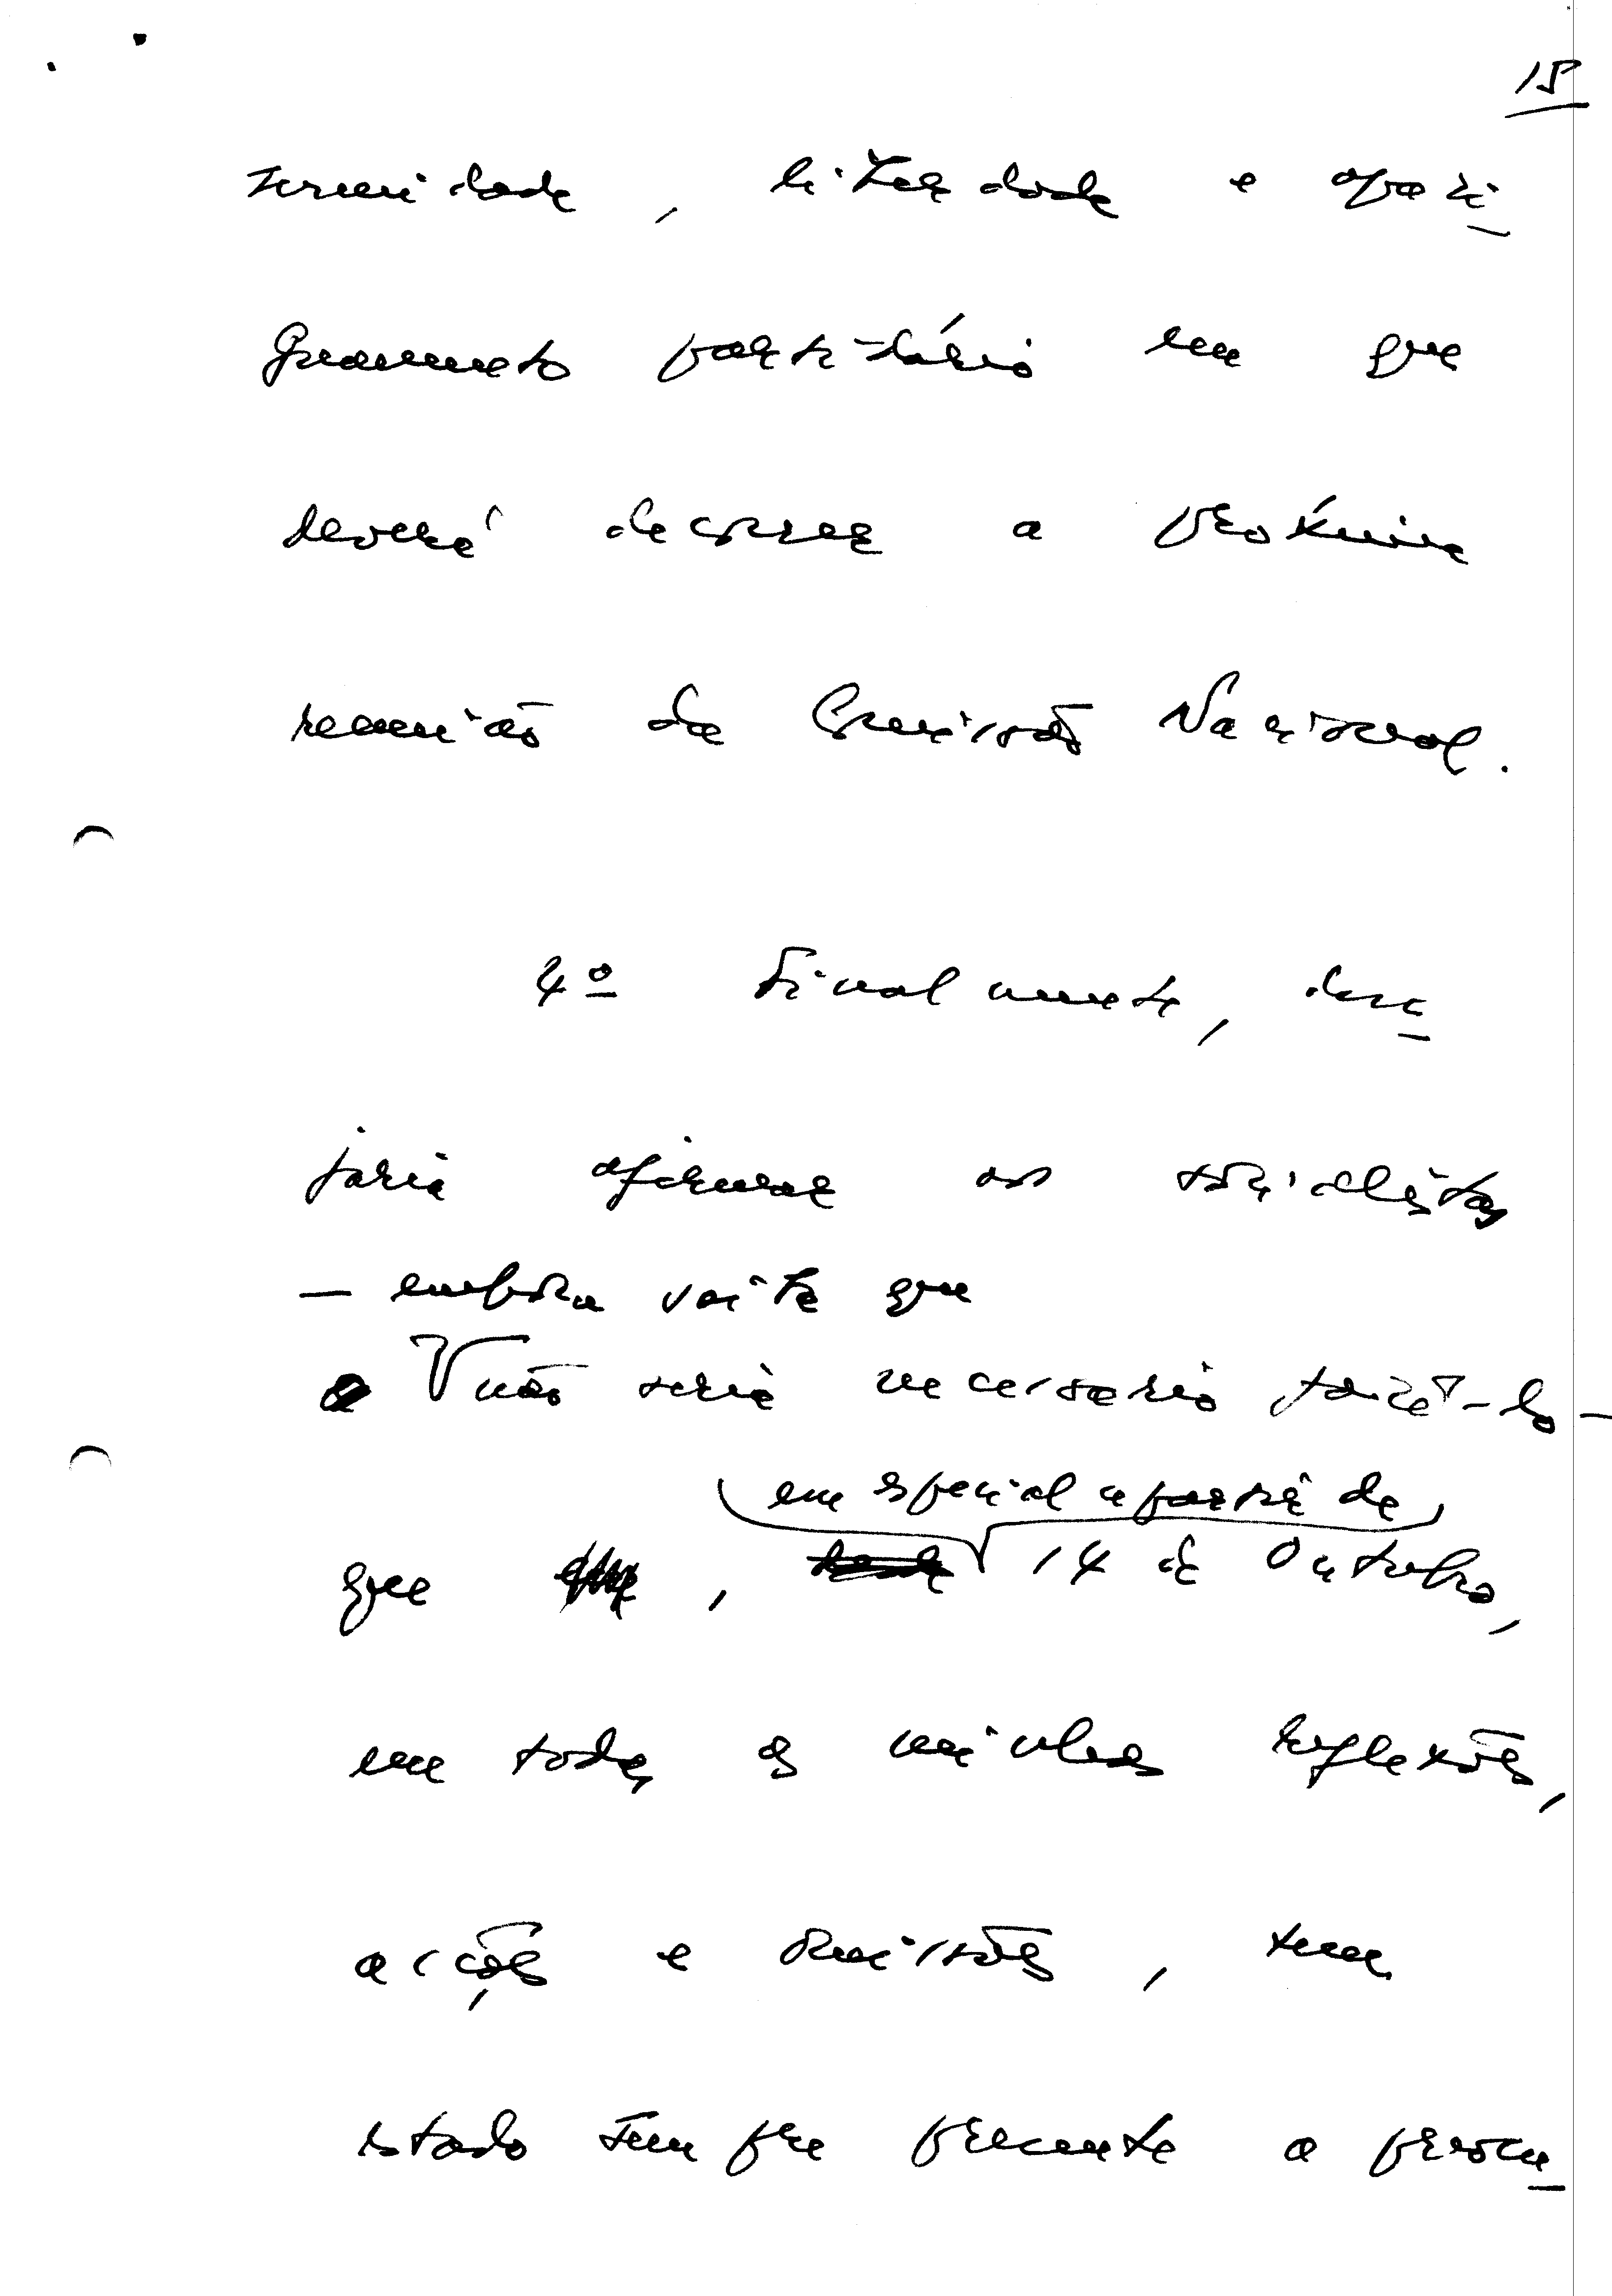 15
serenidade, liberdade e apazi-
guamento partidário em que
deverá decorrer a próxima
reunião da Comissão Nacional.
4º Finalmente, dese-
jaria afirmar aos socialistas
— embora saiba que
não seria necessário fazê-lo —
em especial a partir de
que , 14 de Outubro,
em todas as minhas reflexões,
acções e omissões, tem
estado sempre presente a preocu-